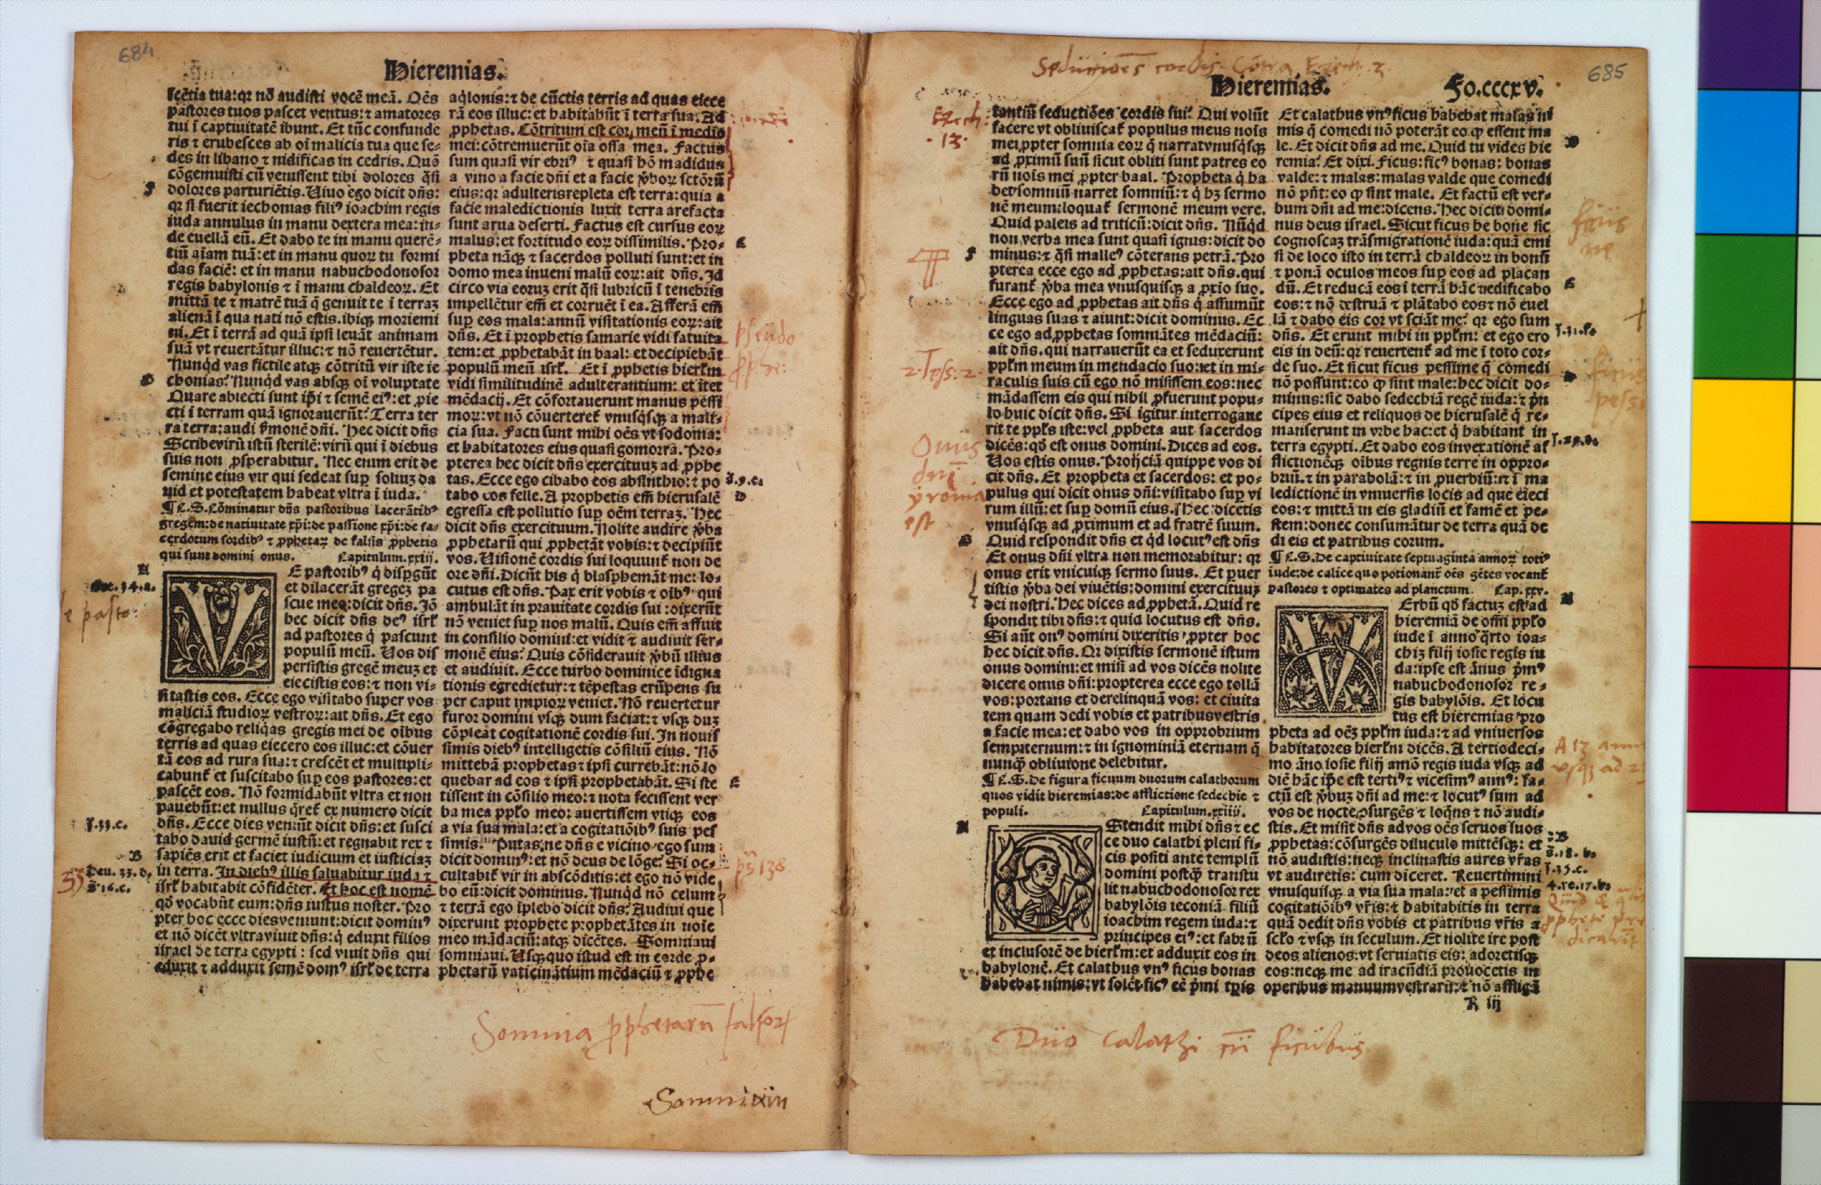 684
Hieremias.
scẽtia tua: qꝛ nõ audisti vocẽ meã. Oẽs
pastores tuos pascet ventus: ⁊ amatores
tui ĩ captiuitatẽ ibunt. Et tũc confunde
ris ⁊ erubesces ab oĩ malicia tua que se⸗
des in libano ⁊ nidificas in cedris. Quõ
cõgemuisti cũ venissent tibi dolores q̃si
dolores parturiẽtis. Uiuo ego dicit dñs:
qꝛ si fuerit iechonias filiꝰ ioachim regis
iuda annulus in manu dextera mea: in⸗
de euellã eũ. Et dabo te in manu querẽ⸗
tiũ aĩam tuã: et in manu quoꝝ tu formi
das faciẽ: et in manu nabuchodonosor
regis babylonis ⁊ ĩ manu chaldeoꝝ. Et
mittã te ⁊ matrẽ tuã q̃ genuit te ĩ terraꝫ
alienã ĩ qua nati nõ estis. ibiqꝫ moriemi
ni. Et ĩ terrã ad quã ipsi leuãt animam
suã vt reuertãtur illuc: ⁊ nõ reuertẽtur.
Nunqd vas fictile atqꝫ cõtritũ vir iste ie
chonias? Nunqd vas absqꝫ oĩ voluptate
Quare abiecti sunt ip̃i ⁊ semẽ eiꝰ: et pie
cti ĩ terram quã ignorauerũt? Terra ter
ra terra: audi s̃monẽ dñi. Hec dicit dñs
Scribe virũ istũ sterilẽ: virũ qui ĩ diebus
suis non ꝓsperabitur. Nec enim erit de
semine eius vir qui sedeat suꝑ soliuꝫ da
uid et potestatem habeat vltra ĩ iuda.
¶ C. S. Cõminatur dñs pastoribus lacerãtibꝰ
gregem: de natiuitate xp̃i: de passione xp̃i: de sa⸗
cerdotum sordibꝰ ⁊ ꝓphetaꝝ de falsis ꝓphetis
qui sunt domini onus. Capitulum. xxiij.
VE pastoribꝰ q̃ disꝑgũt
et dilacerãt gregeꝫ pa
scue mee: dicit dñs. Iõ
hec dicit dñs deꝰ isrl̃
ad pastores q̃ pascunt
populũ meũ. Uos dis
persistis gregẽ meuꝫ et
eiecistis eos: ⁊ non vi⸗
sitastis eos. Ecce ego visitabo super vos
maliciã studioꝝ vestroꝝ: ait dñs. Et ego
cõgregabo reliq̃as gregis mei de oĩbus
terris ad quas eiecero eos illuc: et cõuer
tã eos ad rura sua: ⁊ crescẽt et multipli⸗
cabunt̃ et suscitabo suꝑ eos pastores: et
pascẽt eos. Nõ formidabũt vltra et non
pauebũt: et nullus q̃ret̃ ex numero dicit
dñs. Ecce dies veniũt dicit dñs: et susci
tabo dauid germẽ iustũ: et regnabit rex ⁊
sapiẽs erit et faciet iudicium et iusticiaꝫ
in terra. In diebꝰ illis saluabitur iuda ⁊
isrl̃ habitabit cõfidẽter. Et hoc est nomẽ
qð vocabũt eum: dñs iustus noster. Pro
pter hoc ecce dies veniunt: dicit dominꝰ
et nõ dicẽt vltra viuit dñs: q̃ eduxit filios
israel de terra egypti: sed viuit dñs qui
eduxit ⁊ adduxit semẽ domꝰ isrl̃ de terra
aqlonis: ⁊ de cũctis terris ad quas eiece
rã eos illuc: et habitabũt ĩ terra sua. Ad
ꝓphetas. Cõtritum est cor meũ ĩ medio
mei: cõtremuerũt oĩa ossa mea. Factus
sum quasi vir ebriꝰ ⁊ quasi hõ madidus
a vino a facie dñi et a facie ṽboꝝ sctõrũ
eius: qꝛ adulteris repleta est terra: quia a
facie maledictionis luxit terra arefacta
sunt arua deserti. Factus est cursus eoꝝ
malus: et fortitudo eoꝝ dissimilis. Pro⸗
pheta nãqꝫ ⁊ sacerdos polluti sunt: et in
domo mea inueni malũ eoꝝ: ait dñs. Id
circo via eoruꝫ erit q̃si lubricũ ĩ tenebris
impellẽtur em̃ et corruẽt ĩ ea. Afferã em̃
suꝑ eos mala: annũ visitationis eoꝝ: ait
dñs. Et ĩ prophetis samarie vidi fatuita
tem: et ꝓphetabãt in baal: et decipiebãt
populũ meũ isrl̃. Et ĩ ꝓphetis hierl̃m
vidi similitudinẽ adulterantium: et iter
mẽdacij. Et cõfortauerunt manus pessi
moꝝ: vt nõ cõuerteret̃ vnusqsqꝫ a mali⸗
cia sua. Facti sunt mihi oẽs vt sodoma:
et habitatores eius quasi gomorra. Pro⸗
pterea hec dicit dñs exercituuꝫ ad ꝓphe
tas. Ecce ego cibabo eos absinthio: ⁊ po
tabo eos felle. A prophetis em̃ hierusalẽ
egressa est pollutio suꝑ oẽm terraꝫ. Hec
dicit dñs exercituum. Nolite audire ṽba
ꝓphetarũ qui ꝓphetãt vobis: ⁊ decipiũt
vos. Uisionẽ cordis sui loquunt̃ non de
ore dñi. Dicũt his q̃ blasphemãt me: lo⸗
cutus est dñs. Pax erit vobis ⁊ oĩbꝰ qui
ambulãt in prauitate cordis sui: dixerũt
nõ veniet suꝑ nos malũ. Quis em̃ affuit
in consilio domini: et vidit ⁊ audiuit ser⸗
monẽ eius? Quis cõsiderauit ṽbũ illius
et audiuit. Ecce turbo dominice ĩdigna
tionis egredietur: ⁊ tẽpestas erũpens su
per caput impioꝝ veniet. Nõ reuertetur
furor domini vsqꝫ dum faciat: ⁊ vsqꝫ duꝫ
cõpleat cogitationẽ cordis sui. In nouis
simis diebꝰ intelligetis cõsiliũ eius. Nõ
mittebã prophetas ⁊ ipsi currebãt: nõ lo
quebar ad eos ⁊ ipsi prophetabãt. Si ste
tissent in cõsilio meo: ⁊ nota fecissent ver
ba mea pp̃lo meo: auertissem vtiqꝫ eos
a via sua mala: et a cogitationibꝰ suis pes
simis. Putas ne dñs e vicino ego sum
dicit dominꝰ: et nõ deus de lõge? Si oc⸗
cultabit̃ vir in abscõditis: et ego nõ vide
bo eũ: dicit dominus. Nunqd nõ celum
⁊ terrã ego ĩplebo dicit dñs? Audiui que
dixerunt prophete prophetãtes in noĩe
meo mẽdaciũ: atqꝫ dicẽtes. Somniaui
somniaui. Usqꝫquo istud est in corde ꝓ⸗
phetarũ vaticinãtium mẽdaciũ ⁊ ꝓphe
Ose. 34. a.
J. 33. c.
Deu. 33. d.
33
J. 9. c.
pseudo
ps 138
Somnia ꝓphetarũ falsorꝫ
Somniũ
685
Seductiões cordis. Cõtra Ezech. 2
Hieremias.
Fo. cccxv.
tantiũ seductiões cordis sui? Qui volũt
facere vt obliuiscat̃ populus meus noĩs
mei ꝓpter somnia eoꝝ q̃ narrat vnusqsqꝫ
ad ꝓximũ suũ sicut obliti sunt patres eo
rũ noĩs mei ꝓpter baal. Propheta q̃ ha
bet somniũ narret somniũ: ⁊ q̃ hꝫ sermo
nẽ meum: loquat̃ sermonẽ meum vere.
Quid paleis ad triticũ: dicit dñs. Nũqd
non verba mea sunt quasi ignis: dicit do
minus: ⁊ q̃si malleꝰ cõterens petrã. Pro
pterea ecce ego ad ꝓphetas: ait dñs. qui
furant̃ ṽba mea vnusquisqꝫ a ꝓxio suo.
Ecce ego ad ꝓphetas ait dñs q̃ assumũt
linguas suas ⁊ aiunt: dicit dominus. Ec
ce ego ad ꝓphetas somniãtes mẽdaciũ:
ait dñs. qui narrauerũt ea et seduxerunt
pp̃lm meum in mendacio suo: ⁊ et in mi⸗
raculis suis cũ ego nõ misissem eos: nec
mãdassem eis qui nihil ꝓfuerunt popu⸗
lo huic dicit dñs. Si igitur interrogaue
rit te pp̃ls iste: vel ꝓpheta aut sacerdos
dicẽs: qð est onus domini. Dices ad eos.
Uos estis onus. Prohijciã quippe vos di
cit dñs. Et propheta et sacerdos: et po⸗
pulus qui dicit onus dñi: visitabo suꝑ vi
rum illũ: et suꝑ domũ eius. Hec dicetis
vnusqsqꝫ ad ꝓximum et ad fratrẽ suum.
Quid respondit dñs et qd locutꝰ est dñs
Et onus dñi vltra non memorabitur: qꝛ
onus erit vnicuiqꝫ sermo suus. Et ꝑuer
tistis ṽba dei viuẽtis: domini exercituuꝫ
dei nostri. Hec dices ad ꝓphetã. Quid re
spondit tibi dñs: ⁊ quid locutus est dñs.
Si aũt onꝰ domini dixeritis ꝓpter hoc
hec dicit dñs. Qꝛ dixistis sermonẽ istum
onus domini: et misi ad vos dicẽs nolite
dicere onus dñi: propterea ecce ego tollã
vos: portans et derelinquã vos: et ciuita
tem quam dedi vobis et patribus vestris
a facie mea: et dabo vos in opprobrium
sempiternum: ⁊ in ignominiã eternam q̃
nunq̃ obliuione delebitur.
¶ C. S. De figura ficuum duorum calathorum
quos vidit hieremias: de afflictione sedechie ⁊
populi. Capitulum. xxiiij.
OStendit mihi dñs ⁊ ec
ce duo calathi pleni fi⸗
cis positi ante templũ
domini postq̃ transtu
lit nabuchodonosor rex
babylõis ieconiã filiũ
ioachim regem iuda: ⁊
principes eiꝰ: et fabrũ
et inclusorẽ de hierl̃m: et adduxit eos in
babylonẽ. Et calathus vnꝰ ficus bonas
habebat nimis: vt solẽt ficꝰ eẽ p̃mi tp̃is
Et calathus vnꝰ ficus habebat malas ni
mis q̃ comedi nõ poterãt eo ꝙ essent ma
le. Et dicit dñs ad me. Quid tu vides hie
remia? Et dixi. Ficus: ficꝰ bonas: bonas
valde: ⁊ malas: malas valde que comedi
nõ pñt: eo ꝙ sint male. Et factũ est ver⸗
bum dñi ad me: dicens. Hec dicit domi⸗
nus deus israel. Sicut ficus he bone sic
cognoscaꝫ trãsmigrationẽ iuda: quã emi
si de loco isto in terrã chaldeoꝝ in bonũ
⁊ ponã oculos meos suꝑ eos ad placan
dũ. Et reducã eos ĩ terrã hãc ⁊ edificabo
eos: ⁊ nõ destruã ⁊ plãtabo eos ⁊ nõ euel
lã ⁊ dabo eis cor vt sciãt me: qꝛ ego sum
dñs. Et erunt mihi in pp̃lm: et ego ero
eis in deũ: qꝛ reuertent̃ ad me ĩ toto cor⸗
de suo. Et sicut ficus pessime q̃ comedi
nõ possunt: eo ꝙ sint male: hec dicit do⸗
minus: sic dabo sedechiã regẽ iuda: ⁊ p̃n
cipes eius et reliquos de hierusalẽ q̃ re⸗
manserunt in vrbe hac: et q̃ habitant in
terra egypti. Et dabo eos in vexationẽ af
flictionẽqꝫ oĩbus regnis terre in oppro⸗
briũ: ⁊ in parabolã: ⁊ in ꝓuerbiũ: ⁊ ĩ ma
ledictionẽ in vniuersis locis ad que eieci
eos: ⁊ mittã in eis gladiũ et famẽ et pe⸗
stem: donec consumãtur de terra quã de
di eis et patribus eorum.
¶ C. S. De captiuitate septuaginta annoꝝ totiꝰ
iude: de calice quo potionant̃ oẽs gẽtes vocant̃
pastores ⁊ optimates ad planctum. Cap. xxv.
VErbũ qð factuꝫ est ad
hieremiã de oĩni pp̃lo
iude ĩ anno q̃rto ioa⸗
chiꝫ filij iosie regis iu
da: ipse est ãnus p̃mꝰ
nabuchodonosor re⸗
gis babylõis. Et locu
tus est hieremias pro
pheta ad oẽꝫ pp̃lm iuda: ⁊ ad vniuersos
habitatores hierl̃m dicẽs. A tertiodeci⸗
mo ãno iosie filij amõ regis iuda vsqꝫ ad
diẽ hãc ip̃e est tertiꝰ ⁊ vicesimꝰ annꝰ: fa⸗
ctũ est ṽbuꝫ dñi ad me: ⁊ locutꝰ sum ad
vos de nocte ꝯsurgẽs ⁊ loq̃ns ⁊ nõ audi⸗
stis. Et misit dñs ad vos oẽs seruos suos
ꝓphetas: cõsurgẽs diluculo mittẽsqꝫ: et
nõ audistis: neqꝫ inclinastis aures vr̃as
vt audiretis: cum diceret. Reuertimini
vnusquisqꝫ a via sua mala: et a pessimis
cogitatiõibꝰ vr̃is: ⁊ habitabitis in terra
quã dedit dñs vobis et patribus vr̃is a
sclo ⁊ vsqꝫ in seculum. Et nolite ire post
deos alienos: vt seruiatis eis: adoretisqꝫ
eos: neqꝫ me ad iracũdiã prouocetis in
operibus manuum vestrarũ: ⁊ nõ affligã
R iij
Ezech.
13.
2. Tess: 2.
Onus
est
J. 31. f.
J. 29. d.
J. 18. b.
J. 35. c.
4. re. 17. b.
A 13 anno
Duo calathi cũ ficubus